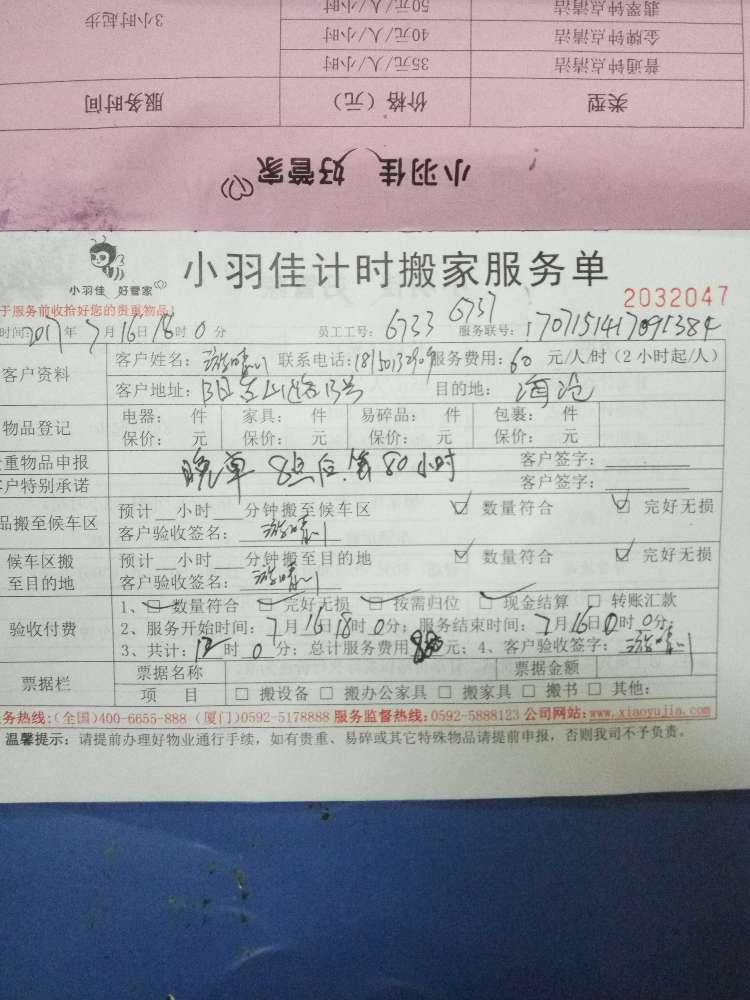 翡翠钟点清洁 50元/人/小时 3小时起步
金牌钟点清洁 40元/人/小时
普通钟点清洁 35元/人/小时
类型 价格（元） 服务时间
小羽佳 好管家
小羽佳 好管家
小羽佳计时搬家服务单
2032047
于服务前收拾好您的贵重物品！
时间:2017年7月16日18时0分 员工工号: 6733 6737 服务联号:
客户资料 客户姓名: 联系电话: 服务费用: 60 元/人/时（2小时起/人）
客户地址: 目的地: 海沧
物品登记 电器: 件 家具: 件 易碎品: 件 包裹: 件
保价: 元 保价: 元 保价: 元 保价: 元
重物品申报 晚单 8点后 算80小时 客户签字:
户特别承诺 客户签字:
品搬至候车区 预计__小时___分钟搬至候车区 ☑ 数量符合 ☑ 完好无损
客户验收签名:
候车区搬至目的地 预计__小时___分钟搬至目的地 ☑ 数量符合 ☑ 完好无损
客户验收签名:
验收付费 1、☑数量符合 ☑完好无损 ☑按需归位 ☑现金结算 □转账汇款
2、服务开始时间: 7月16日18时0分; 服务结束时间: 7月16日0时0分;
3、共计: 12时0分; 总计服务费用 元; 4、客户验收签字:
票据栏 票据名称 票据金额
项 目 □ 搬设备 □ 搬办公家具 □ 搬家具 □ 搬书 □ 其他:
务热线:(全国)400-6655-888 (厦门)0592-5178888 服务监督热线:0592-5888123 公司网站:www.xiaoyujia.com
温馨提示: 请提前办理好物业通行手续，如有贵重、易碎或其它特殊物品请提前申报，否则我司不予负责。